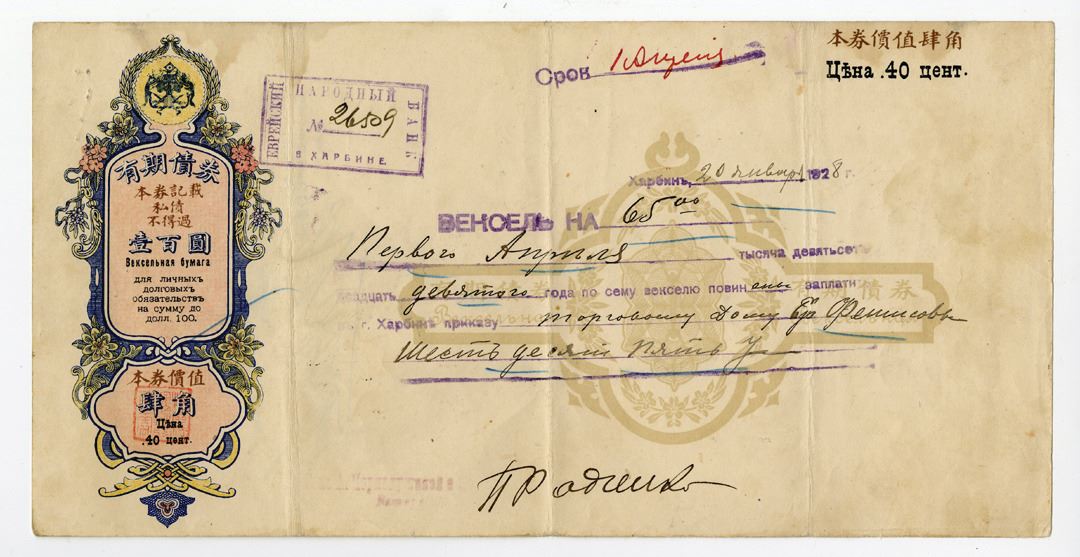 本券價值肆角
Цѣна .40 цент.
Срок 1 Апреля
ЕВРЕЙСКИЙ НАРОДНЫЙ БАНК
№ 26509
В ХАРБИНЕ.
Харбинъ, 20 января 1928 г.
ВЕКСЕЛЬ НА 65 00
Первого Апреля тысяча девятьсотъ
двадцать девятого года по сему векселю повин заплатить
г. Харбинѣ приказу торговому Дому Бр
Шесть десят пять
有期債券
本券記載
私債
不得過
壹百圓
Вексельная бумага
для личныхъ
долговыхъ
обязательствъ
на сумму до
долл. 100.
本券價值
肆角
Цѣна
.40 цент.